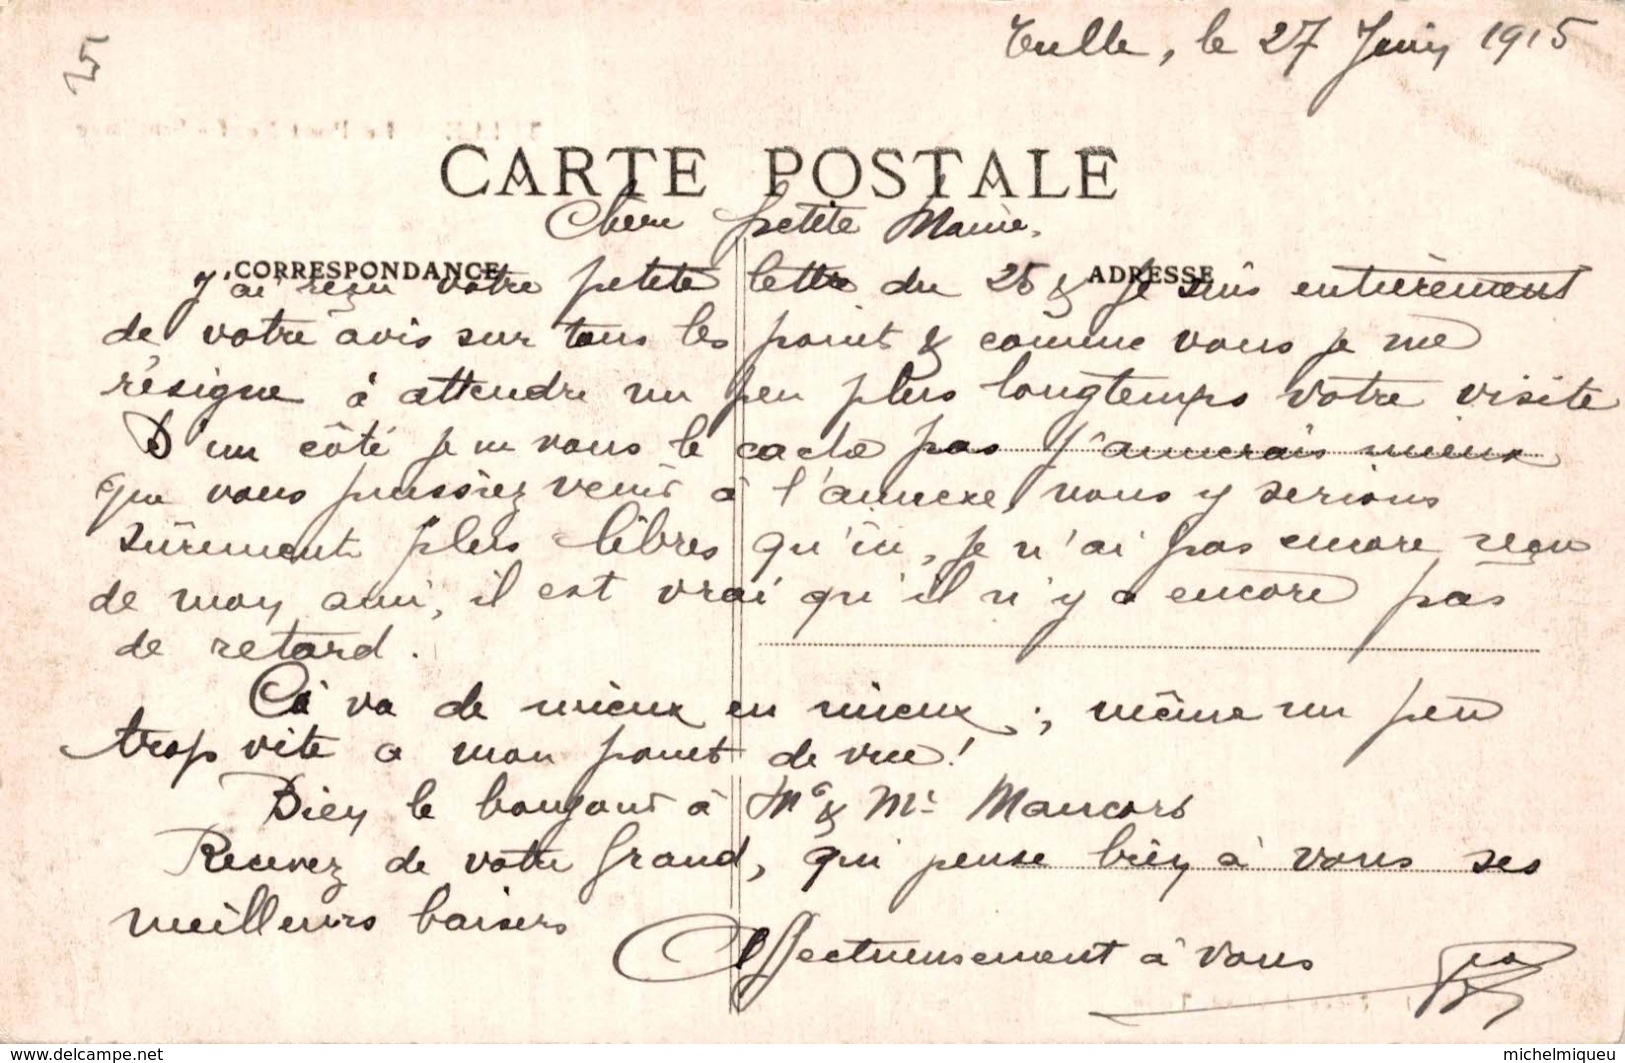 Tulle, le 27 Juin 1915
CARTE POSTALE
Chère petite Mamie.
CORRESPONDANCE
ADRESSE
J'ai reçu votre petite lettre du 25 & je suis entièrement
de votre avis sur tous les point & comme vous je me
résigne à attendre un peu plus longtemps votre visite
D'un côté je ne vous le cache pas j'aimerais mieux
que vous puissiez venir à l'annexe, nous y serions
sûrement plus libres qu'ici, je n'ai pas encore reçu
de mon ami, il est vrai qu'il n'y a encore pas
de retard.
Cà va de mieux en mieux ; même un peu
trop vite a mon point de vue!
Bien le bonjour à Me & Mr
Recevez de votre Grand, qui pense bien à vous ses
meilleurs baisers
Affectueusement à vous
www.delcampe.net
michelmiqueu